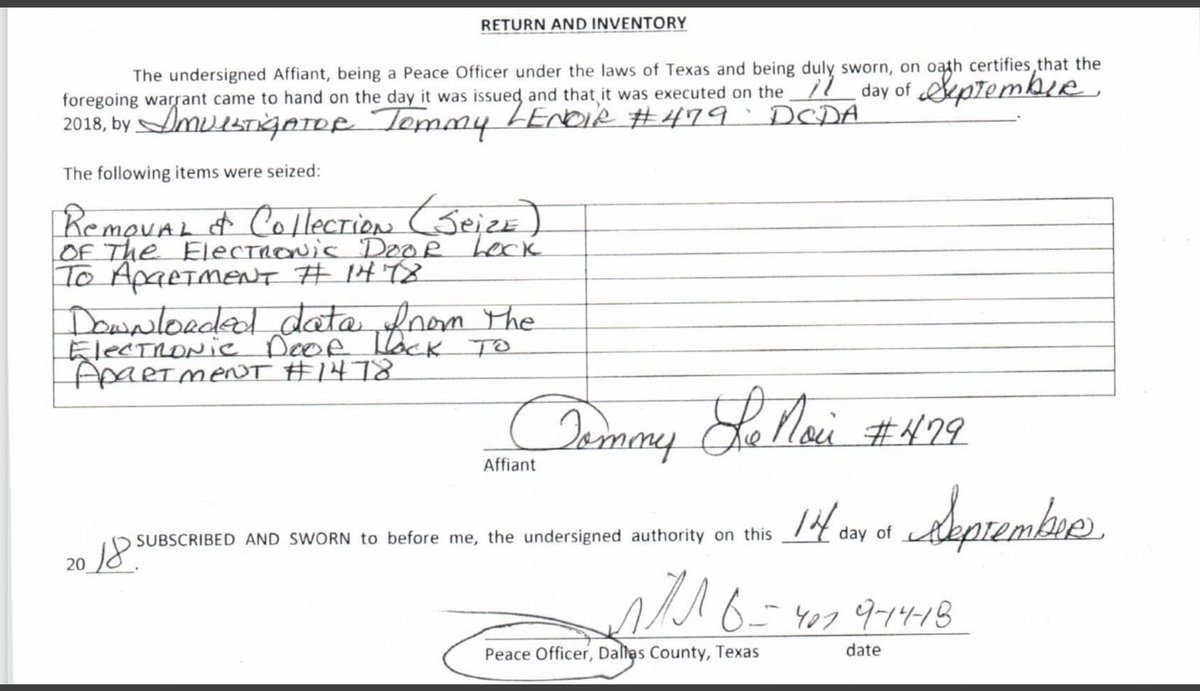 RETURN AND INVENTORY
The undersigned Affiant, being a Peace Officer under the laws of Texas and being duly sworn, on oath certifies that the
foregoing warrant came to hand on the day it was issued and that it was executed on the 11 day of September,
2018, by Investigator Tommy LENOIR #479 · DCDA.
The following items were seized:
Removal & Collection (Seize)
OF The Electronic Door Lock
To Apartment # 1478
Downloaded data from The
Electronic Door Lock To
Apartment #1478
Tommy LeNoir #479
Affiant
SUBSCRIBED AND SWORN to before me, the undersigned authority on this 14 day of September,
20 18.
407 9-14-18
Peace Officer, Dallas County, Texas date